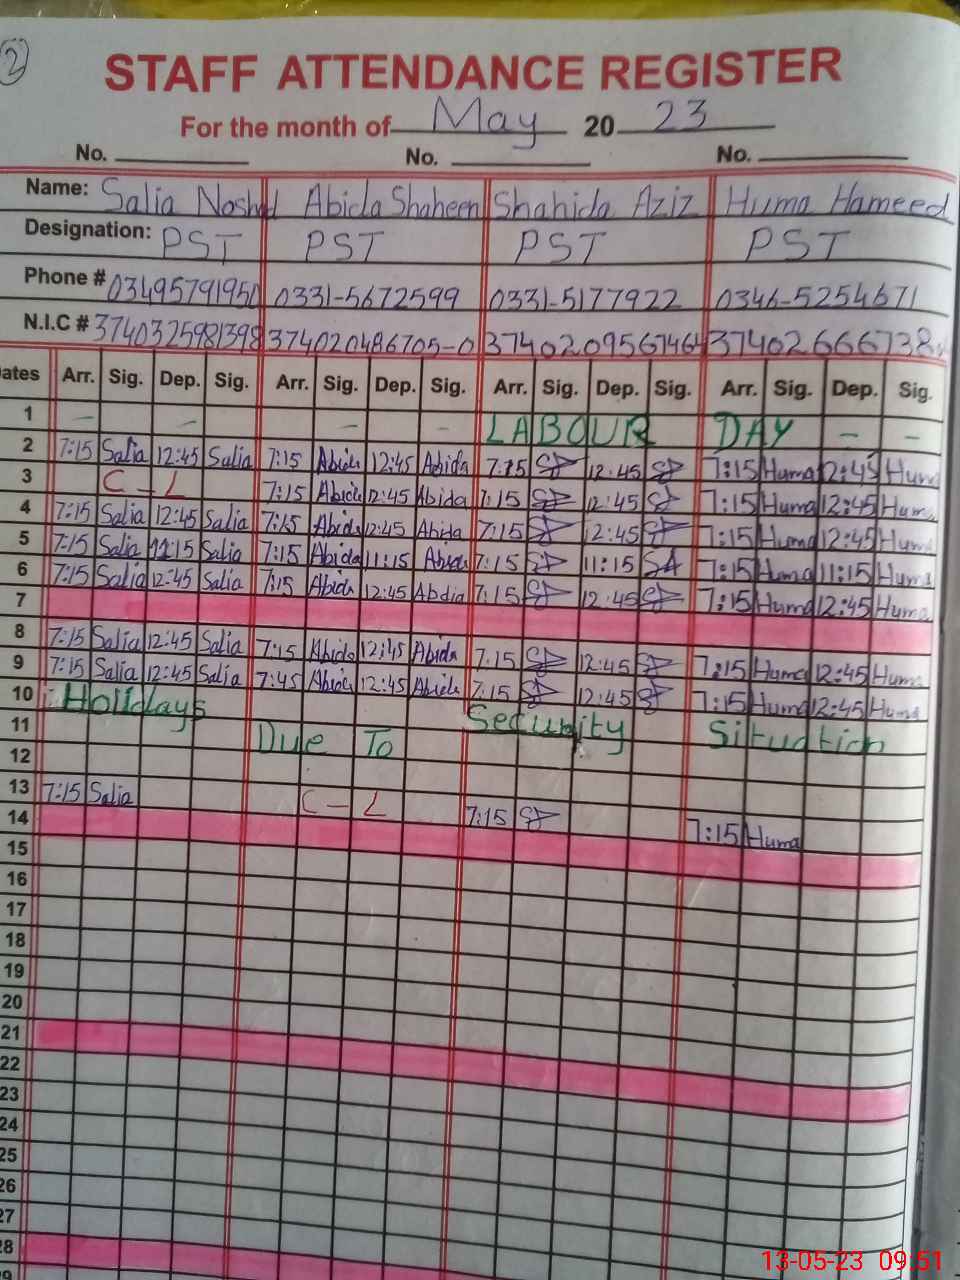 2
STAFF ATTENDANCE REGISTER
For the month of May 20 23
No. No. No.
Name: Salia Noshad Abida Shaheen Shahida Aziz Huma Hameed
Designation: PST PST PST PST
Phone # 03495791950 0331-5672599 0331-5177922 0346-5254671
N.I.C # 3740325981398 374020486705-0 3740209567464 37402666738
ates Arr. Sig. Dep. Sig. Arr. Sig. Dep. Sig. Arr. Sig. Dep. Sig. Arr. Sig. Dep. Sig.
1 - - - - LABOUR DAY - -
2 7:15 Salia 12:45 Salia 7:15 Abida 12:45 Abida 7:15 12:45 7:15 Huma 12:45 Huma
3 C-L 7:15 Abida 12:45 Abida 7:15 12:45 7:15 Huma 12:45 Huma
4 7:15 Salia 12:45 Salia 7:15 Abida 12:45 Abida 7:15 12:45 7:15 Huma 12:45 Huma
5 7:15 Salia 11:15 Salia 7:15 Abida 11:15 Abida 7:15 11:15 SA 7:15 Huma 11:15 Huma
6 7:15 Salia 12:45 Salia 7:15 Abida 12:45 Abdia 7:15 12:45 7:15 Huma 12:45 Huma
7
8 7:15 Salia 12:45 Salia 7:15 Abida 12:45 Abida 7:15 12:45 7:15 Huma 12:45 Huma
9 7:15 Salia 12:45 Salia 7:45 Abida 12:45 Abida 7:15 12:45 7:15 Huma 12:45 Huma
10 Holidays Due To Security Situation
11
12
13 7:15 Salia C-L 7:15 7:15 Huma
14
15
16
17
18
19
20
21
22
23
24
25
26
27
28
29
13-05-23 09:51